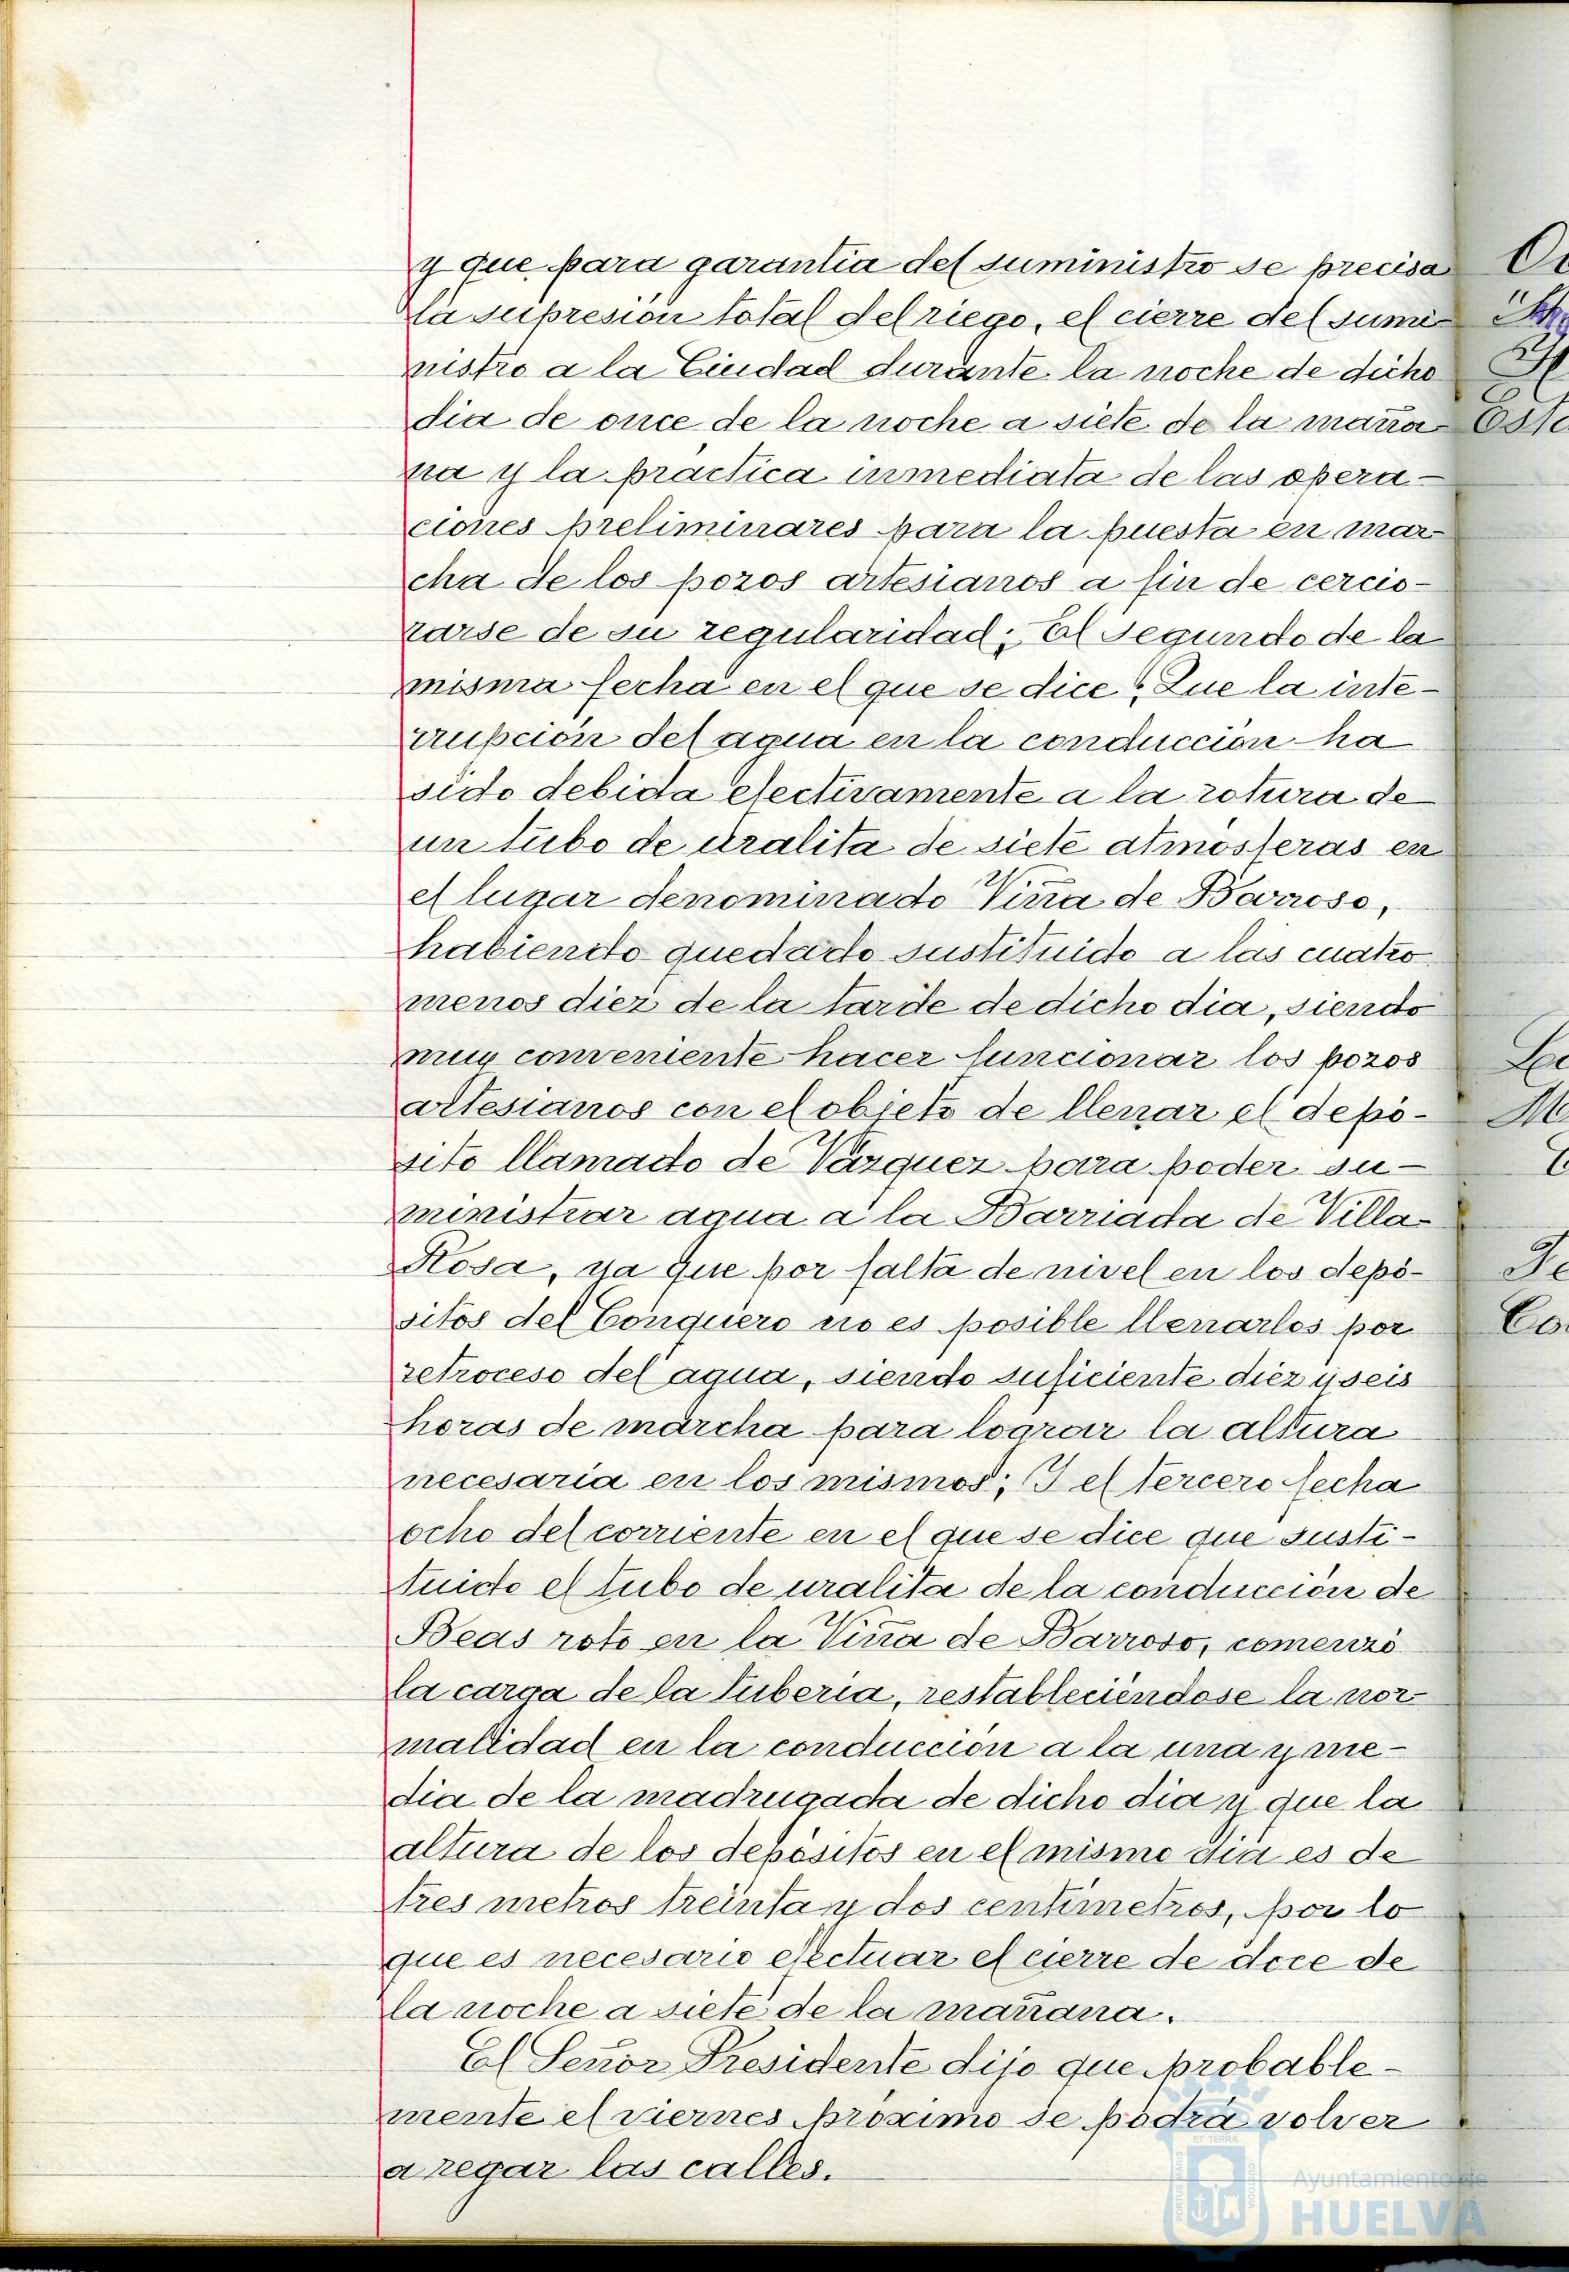 y que para garantia del suministro se precisa
la supresión total del riego, el cierre del sumi-
nistro a la Ciudad durante la noche de dicho
dia de once de la noche a siete de la maña-
na y la practica inmediata de las opera-
ciones preliminares para la puesta en mar-
cha de los pozos artesianos a fin de cercio-
rarse de su regularidad; El segundo de la
misma fecha en el que se dice "Que la inte-
rrupción del agua en la conducción ha
sido debida efectivamente a la rotura de
un tubo de uralita de siete atmósferas en
el lugar denominado Viña de Barroso,
habiendo quedado sustituido a las cuatro
menos diez de la tarde de dicho dia, siendo
muy conveniente hacer funcionar los pozos
artesianos con el objeto de llenar el depó-
sito llamado de Vázquez para poder su-
ministrar agua a la Barriada de Villa-
Rosa, ya que por falta de nivel en los depó-
sitos del Conquero no es posible llenarlos por
retroceso del agua, siendo suficiente diez y seis
horas de marcha para lograr la altura
necesaria en los mismos; Y el tercero fecha
ocho del corriente en el que se dice que susti-
tuido el tubo de uralita de la conducción de
Beas roto en la Viña de Barroso, comenzó
la carga de la tuberia, restableciéndose la nor-
malidad en la conducción a la una y me-
dia de la madrugada de dicho dia y que la
altura de los depósitos en el mismo dia es de
tres metros treinta y dos centimetros, por lo
que es necesario efectuar el cierre de doce de
la noche a siete de la mañana.
El Señor Presidente dijo que probable-
mente el viernes próximo se podrá volver
a regar las calles.
Ayuntamiento de
HUELVA